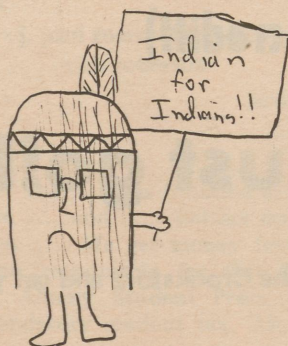 Indian
for
Indians!!